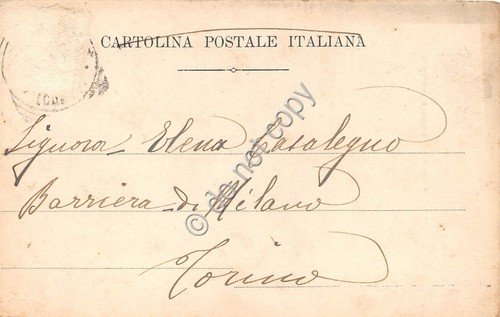 CARTOLINA POSTALE ITALIANA
Signora Elena Casalegno
Barriera di Milano
Torino
© do not copy